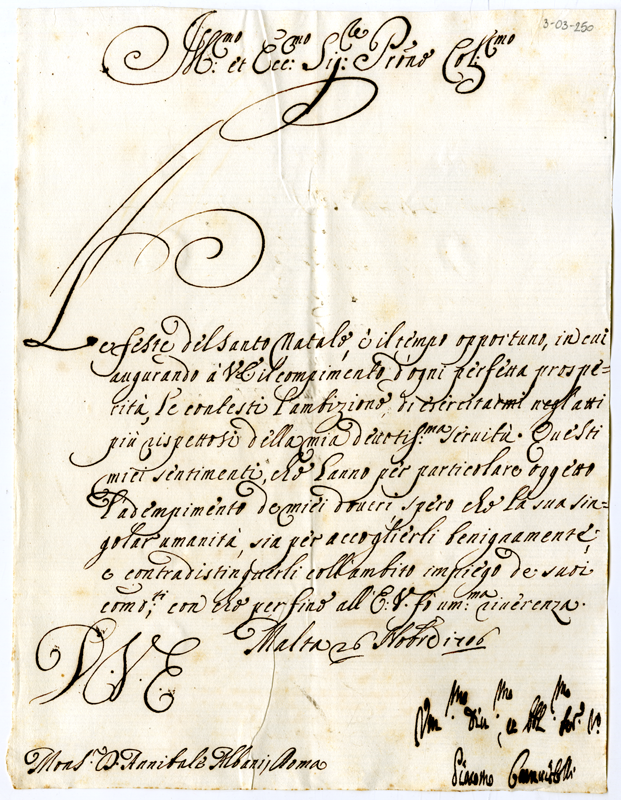 3-03-250
Ill.mo et Ecc.mo Sig.re Prone Col.mo
Le feste del Santo Natale, è il tempo opportuno, in cui
augurando à V.E. il compimento d'ogni perfetta prospe=
rità, le contesti l'ambizione, di esercitarmi negl'atti
più rispettosi della mia devotis.ma servitù. Questi
miei sentimenti, che hanno per particolare oggetto
l'adempimento de miei doveri spero che la sua sin=
golar umanità, sia per accoglierli benignamente,
e contradistinguerli coll'ambito impiego de suoi
com.ti, con che per fine all'E.V. fò um.ma riverenza.
Malta 26 Nbre 1706
D.V.E.
Giacomo
Mons.r D. Annibale Albani, Roma